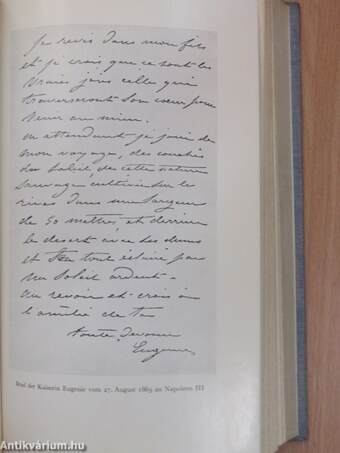 Je revis dans mon fils
et je crois que ce sont les
vraies joies celle qui
traverseront son coeur pour
venir au mien.
en attendant je jouis de
mon voyage, des couchés
du soleil, de cette nature
sauvage cultivée sur les
rives dans une largeur
de 50 mètres, et derrière
le desert avec ses dunes
et tout éclairé par
un soleil ardent.
au revoir et crois à
l'amitié de ta
toute dévouée
Eugénie
Brief der Kaiserin Eugenie vom 27. August 1869 an Napoleon III
Antikvárium.hu